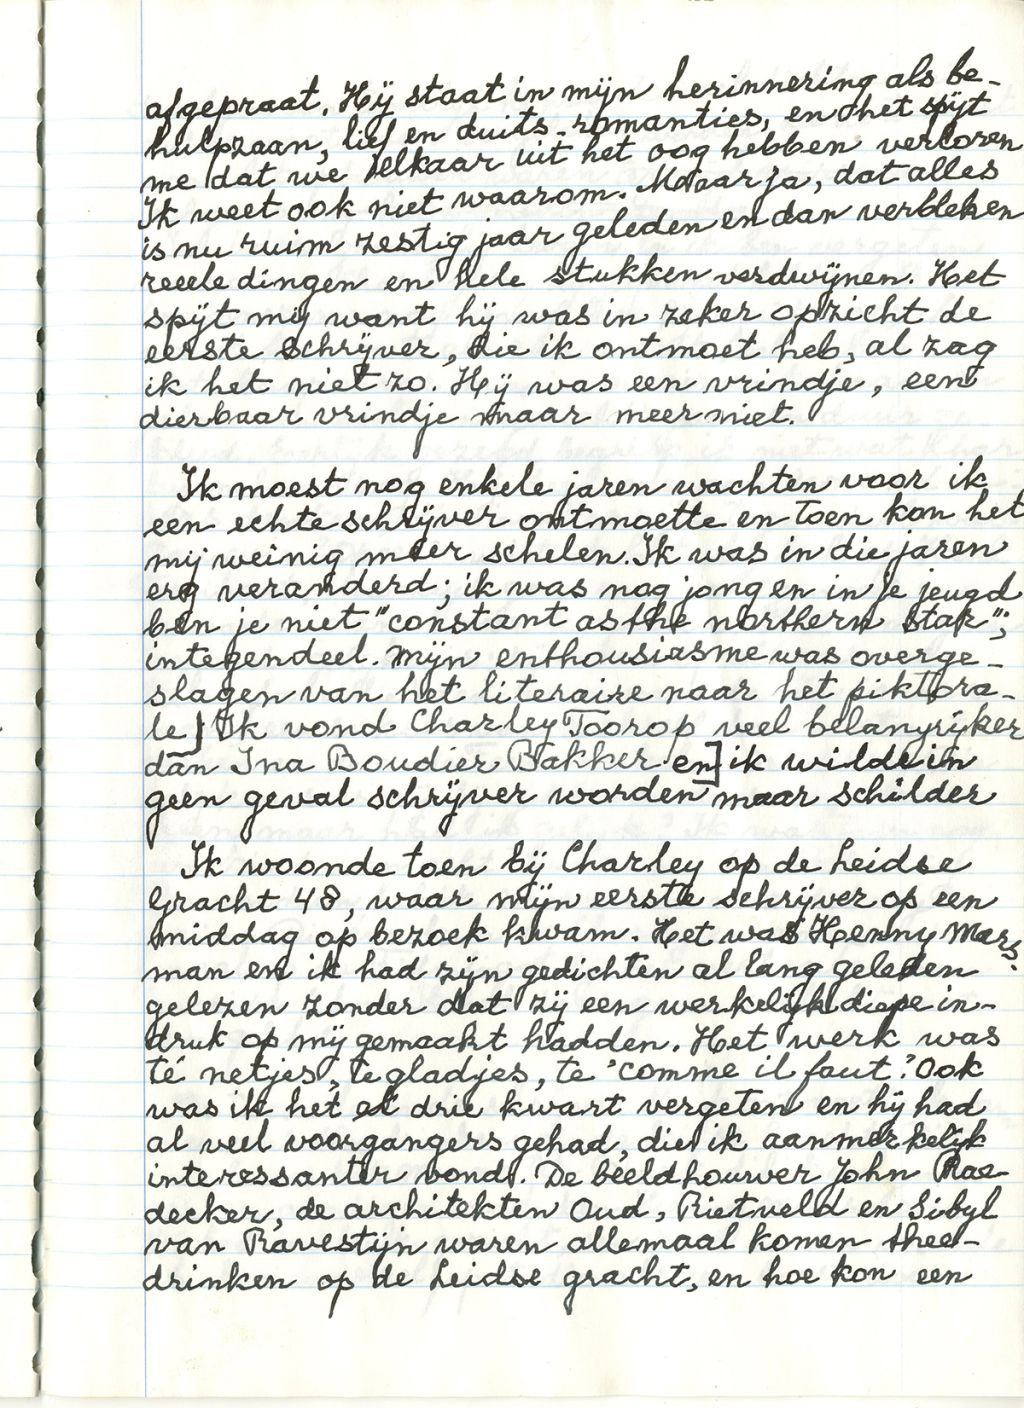 afgepraat. Hij staat in mijn herinnering als be-
hulpzaan, lief en duits-romanties, en het spijt
me dat we elkaar uit het oog hebben verloren
Ik weet ook niet waarom. Maar ja, dat alles
is nu ruim zestig jaar geleden en dan verbleken
reeele dingen en hele stukken verdwijnen. Het
spijt mij want hij was in zeker opzicht de
eerste schrijver, die ik ontmoet heb, al zag
ik het niet zo. Hij was een vrindje, een
dierbaar vrindje maar meer niet.
Ik moest nog enkele jaren wachten voor ik
een echte schrijver ontmoette en toen kon het
mij weinig meer schelen. Ik was in die jaren
erg veranderd; ik was nog jong en in je jeugd
ben je niet "constant as the northern star";
integendeel. Mijn enthousiasme was overge-
slagen van het literaire naar het piktora-
le] Ik vond Charley Toorop veel belangrijker
dan Ina Boudier Bakker en] ik wilde in
geen geval schrijver worden maar schilder
Ik woonde toen bij Charley op de Leidse
Gracht 48, waar mijn eerste schrijver op een
middag op bezoek kwam. Het was Henny Mars-
man en ik had zijn gedichten al lang geleden
gelezen zonder dat zij een werkelijk diepe in-
druk op mij gemaakt hadden. Het werk was
té netjes, te gladjes, te 'comme il faut'. Ook
was ik het al drie kwart vergeten en hij had
al veel voorgangers gehad, die ik aanmerkelijk
interessanter vond. De beeldhouwer John Rae-
decker, de architekten Oud, Rietveld en Sibyl
van Ravestijn waren allemaal komen thee-
drinken op de Leidse gracht, en hoe kon een